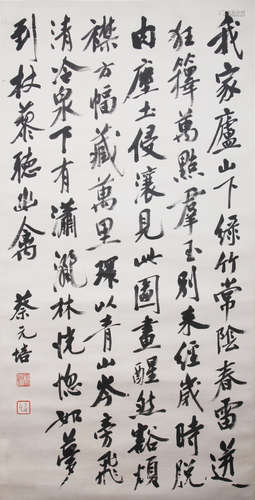 我家廬山下綠竹常陰春雷迸
狂籜萬點羣玉別來經歲時脫
由塵土侵瀼見此圖畫醒然豁煩
襟方幅藏萬里環以青山岑旁飛
清冷泉下有瀟灑林恍惚如夢
到杖藜聽幽禽
蔡元培